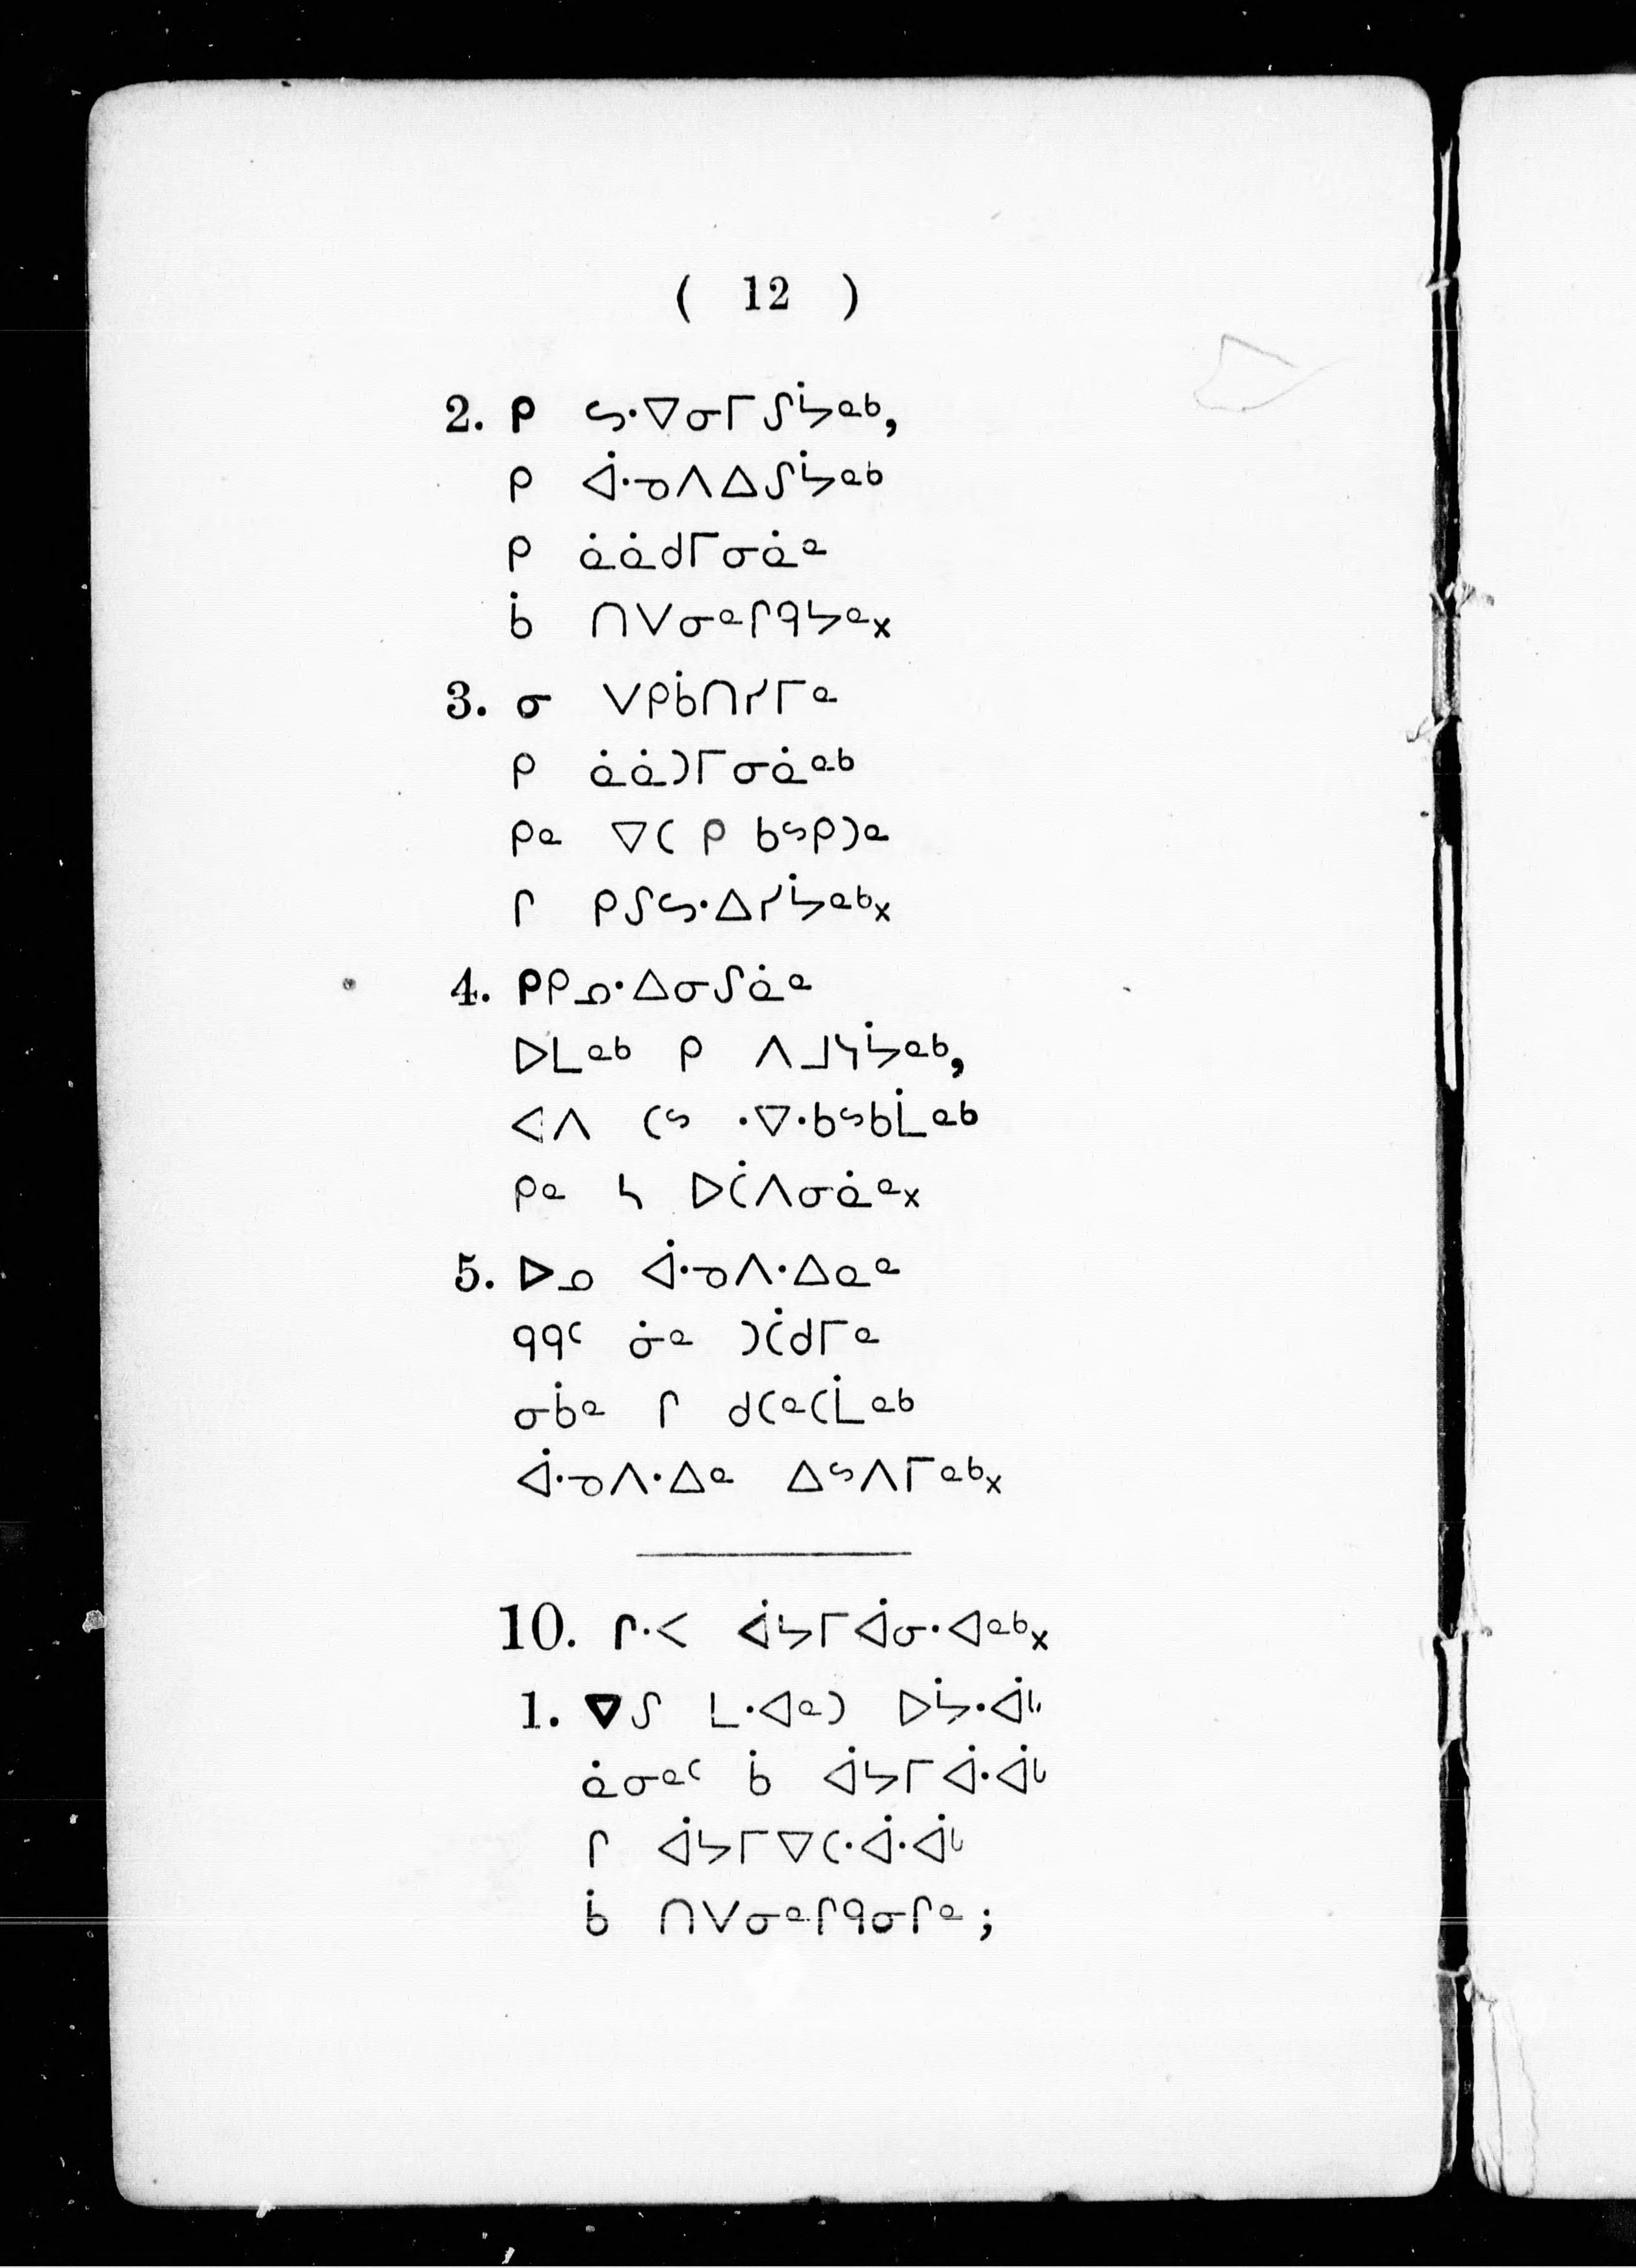 ( 12 )
2. ᑭ ᔕᐧᐁᓂᒥᔑᔮᓐᒃ,
ᑭ ᐋᐧᓀᐱᐃᔑᔮᓐᒃ
ᑭ ᓈᓈᑯᒥᓂᓈᓐ
ᑳ ᑎᐯᓂᓐᒋᑫᔭᓐ᙮
3. ᓂ ᐯᑭᑳᑎᓯᒥᓐ
ᑭ ᓈᓈᑐᒥᓂᓈᓐᒃ
ᑭᓐ ᐁᑕ ᑭ ᑲᔥᑭᑐᓐ
ᒋ ᑭᔑᔕᐧᐃᓯᔮᓐᒃ᙮
4. ᑭᑭᓄᐧᐃᓂᔑᓈᓐ
ᐅᒪᓐᒃ ᑭ ᐱᒧᓴᔮᓐᒃ,
ᐸᐱ ᑕᔥ ᐧᐁᐧᑲᔥᑲᒫᓐᒃ
ᑭᓐ ᓴ ᐅᑖᐱᓂᓈᓐ᙮
5. ᐅᓄ ᐋᐧᓀᐱᐧᐃᓇᓐ
ᑫᑫᑦ ᓃᓐ ᑐᑖᑯᒥᓐ
ᓂᑳᓐ ᒋ ᑯᑕᓐᑕᒫᓐᒃ
ᐋᐧᓀᐱᐧᐃᓐ ᐃᔥᐱᒥᓐᒃ᙮
10. ᒋᐧᐸ ᐋᔭᒥᐋᓂᐧᐊᓐᒃ᙮
1. ᐁᔑ ᒪᐧᐊᓐᑐ ᐅᔮᐧᐋᒡ
ᓈᓂᓐᑦ ᑳ ᐋᔭᒥᐋᐧᐋᒡ
ᒋ ᐋᔭᒥᐁᑕᐧᐋᐧᐋᒡ
ᑳ ᑎᐯᓂᓐᒋᑫᓂᒋᓐ ;